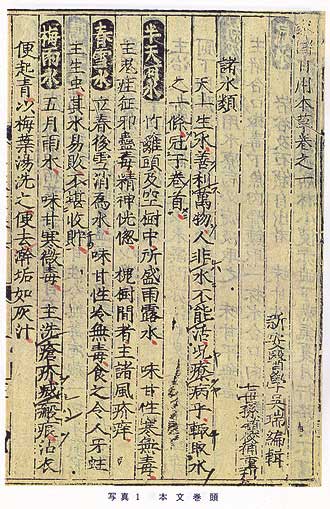 用本草卷之一
新安醫學吳瑞編輯
七世孫鎮校補重刊
諸水類
天一生水善利萬物人非水不能活况療病乎輙取水
之十一條冠于卷首
半天河水 竹籬頭及空樹中所盛雨露水 味甘性寒無毒
主鬼疰狂邪蠱毒精神恍惚 槐樹間者主諸風疥痒
春雪水 立春後雪消為水 味甘性冷無毒食之令人牙蛀
主生虫其水易敗不堪收貯
梅雨水 五月雨水 味甘寒微毒 主洗瘡疥滅瘢痕沾衣
便起青沙梅葉湯洗之便去澣垢如灰汁
写真1 本文巻頭